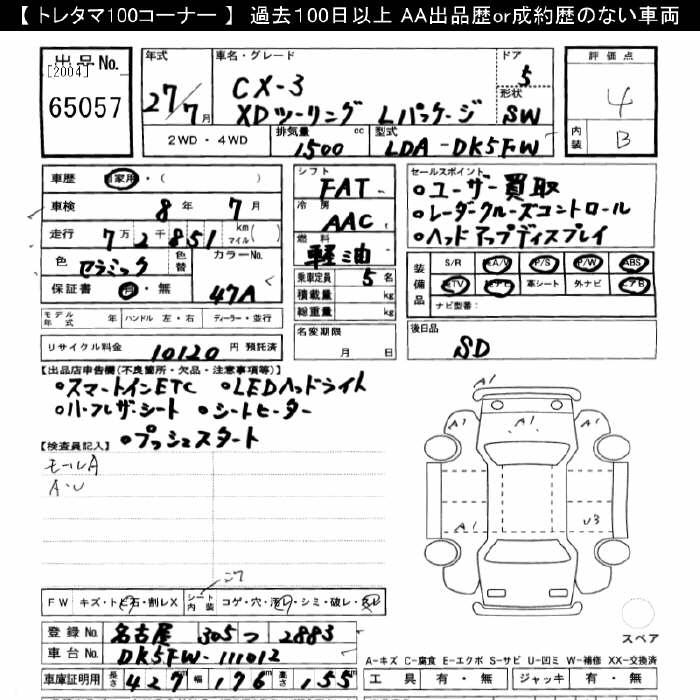 【 トレタマ100コーナー 】 過去100日以上 AA出品歴or成約歴のない車両
出品No. [2004] 65057
年式 27/7月
車名・グレード CX-3 XDツーリング Lパッケージ
ドア 5
形状 SW
評価点 4
内装 B
2WD ・ 4WD
排気量 1500 cc
型式 LDA-DK5FW
車歴 自家用・( )
車検 8 年 7 月
走行 7万2千851 km マイル( )
色 セラミック 色替 カラーNo. 47A
保証書 有・無
シフト FAT
冷房 AAC
燃料 軽油
乗車定員 5 名
積載量 kg
総重量 kg
セールスポイント
・ユーザー買取
・レーダークルーズコントロール
・ヘッドアップディスプレイ
装備品 S/R 純A/W P/S P/W ABS
純TV 純ナビ 革シート 外ナビ エアB
ナビ型番:
モデル年式 年 ハンドル 左・右 ディーラー・並行
リサイクル料金 10120 円 預託済
名変期限 月 日
後日品 SD
【出品店申告欄(不良箇所・欠品・注意事項等)】
・スマートインETC ・LEDヘッドライト
・ハーフレザーシート ・シートヒーター
・プッシュスタート
【検査員記入】
モールA
A・U
A1
A1 A1 A1
A1 U3
コゲ
FW キズ・トビ石・割レX シート内装 コゲ・穴・汚レ・シミ・破レ・スレ
登録No. 名古屋 305 つ 2883
車台No. DK5FW-111012
車庫証明用 長さ 427 幅 176 高さ 155
スペア
A-キズ C-腐食 E-エクボ S-サビ U-凹ミ W-補修 XX-交換済
工具 有・無 ジャッキ 有・無